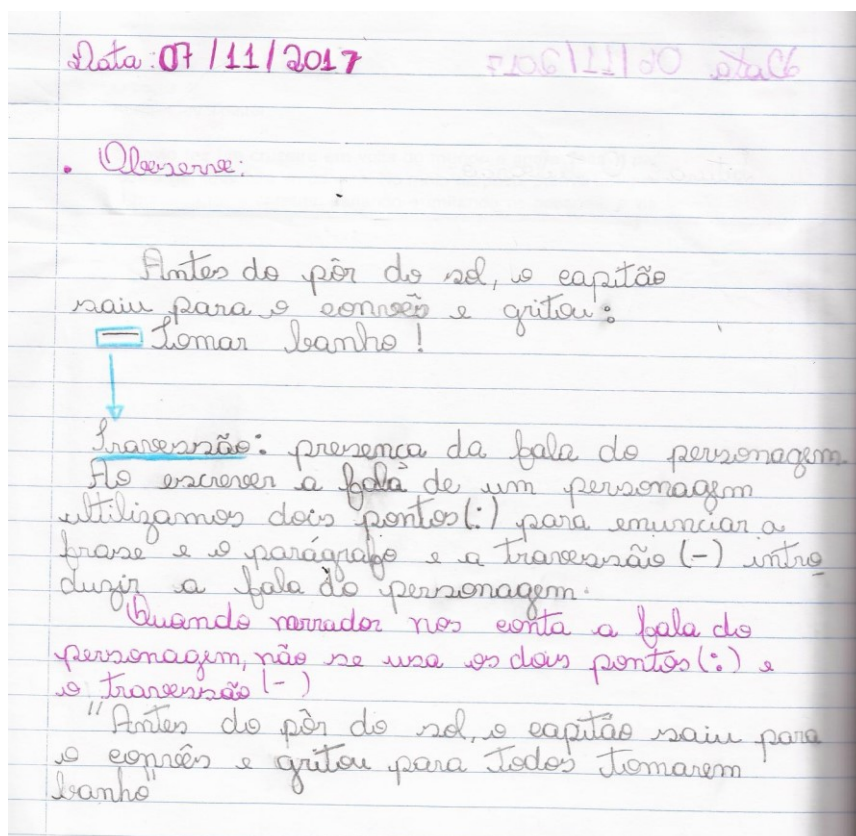 Data: 07/11/2017
. Observe:
Antes do pôr do sol, o capitão
saiu para o convés e gritou:
— Tomar banho!
Travessão: presença da fala do personagem
Ao escrever a fala de um personagem
ultilizamos dois pontos (:) para enunciar a
frase e o parágrafo e a travessão (-) intro
duzir a fala do personagem.
Quando narrador nos conta a fala do
personagem, não se usa os dois pontos (:) e
o travessão (-)
"Antes do pôr do sol, o capitão saiu para
o convés e gritou para todos tomarem
banho"